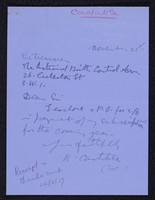 Constable
November 25
The Treasurer
The National Birth Control Assn.
26. Eccleston St
S.W.1.
Dear Sir
I enclose a P.O. for 5/-
in payment of my subscription
for the coming year.
Yours faithfully
K. Constable
Receipt +
thanks sent